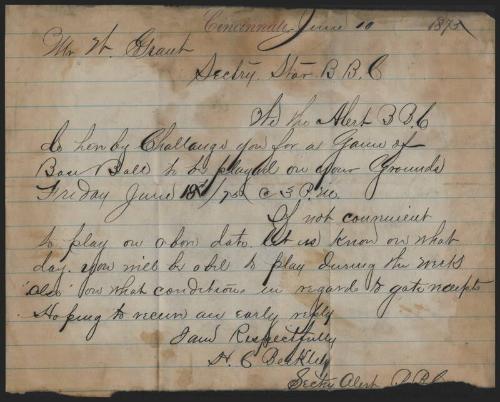 Cincinnati June 10 1875
Mr W. Grant
Sectry. Star B B C
We the Alert B B C
do herby Challange you for a Game of
Base Ball to be played on your Grounds
Friday June 18th/75 @ 3 P.M.
If not convnient
to play on abov date let us know on what
day you will be able to play during the week
also on what conditions in regards to gate receipts
Hoping to receive an early reply
I am Respectfully
H. C. Berkley
Sectry Alert B.B.C.